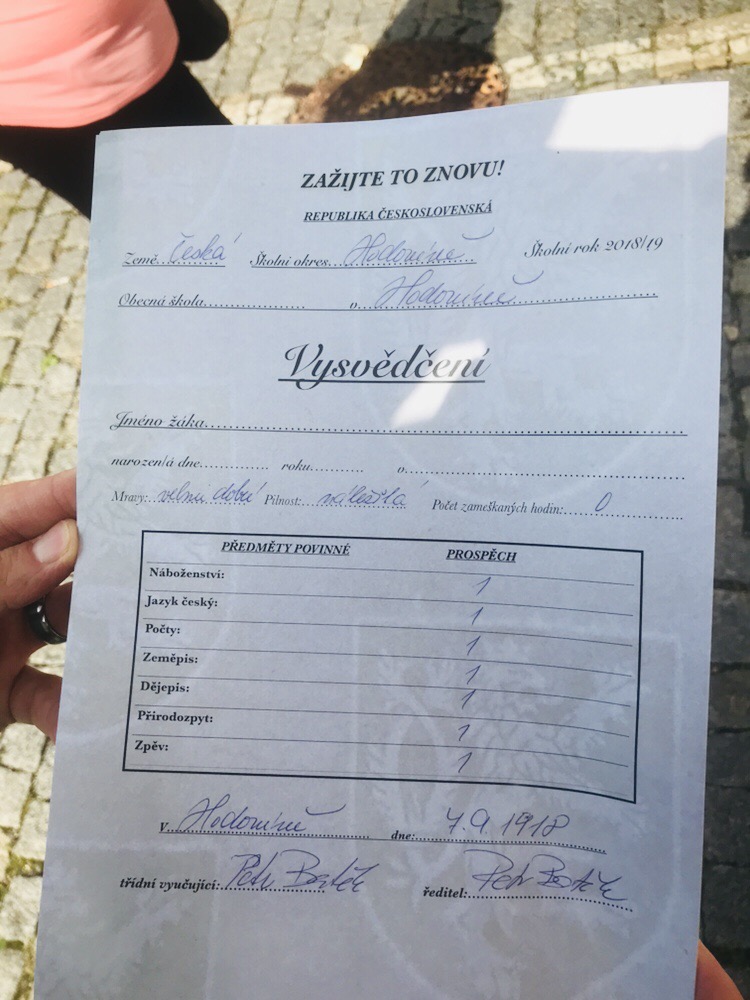 ZAŽIJTE TO ZNOVU!
REPUBLIKA ČESKOSLOVENSKÁ
Země....Česká Školní okres...Hodoníně... Školní rok 2018/19
Obecná škola.................... v...Hodoníně...
Vysvědčení
Jméno žáka.................................................
narozen/á dne............. roku........... v.........................
Mravy: velmi dobré Pilnost: náležitá Počet zameškaných hodin: 0
PŘEDMĚTY POVINNÉ PROSPĚCH
Náboženství: 1
Jazyk český: 1
Počty: 1
Zeměpis: 1
Dějepis: 1
Přírodozpyt: 1
Zpěv: 1
V...Hodoníně... dne: 7.9.1918
třídní vyučující: Petr ředitel: Petr